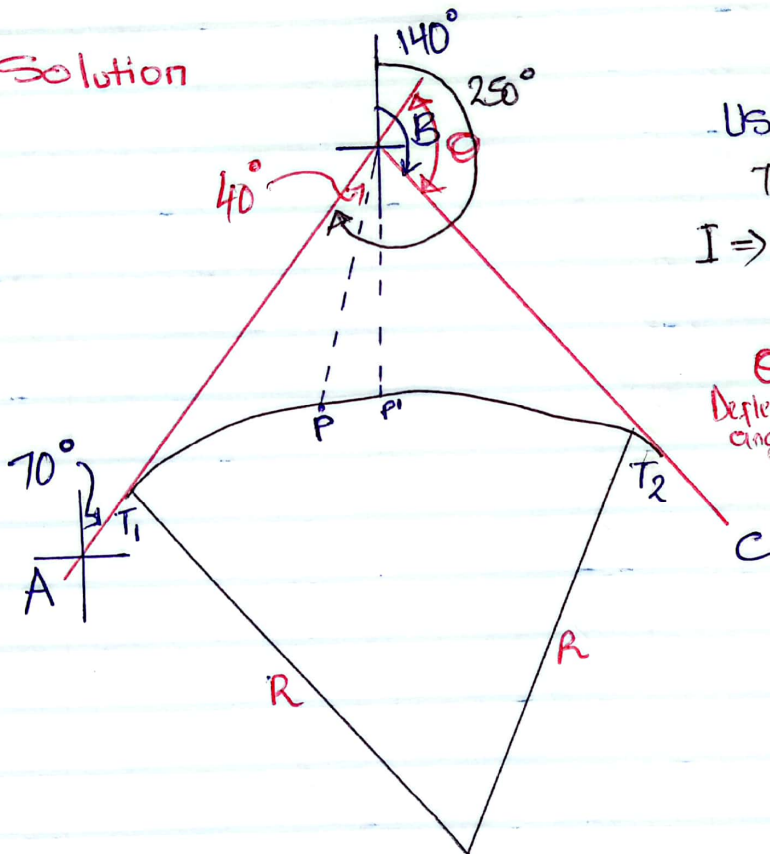 Solution
140°
250°
B
θ
US
40°
T
I ⇒
P
P'
θ
Defle
ang
70°
T1
T2
A
C
R
R